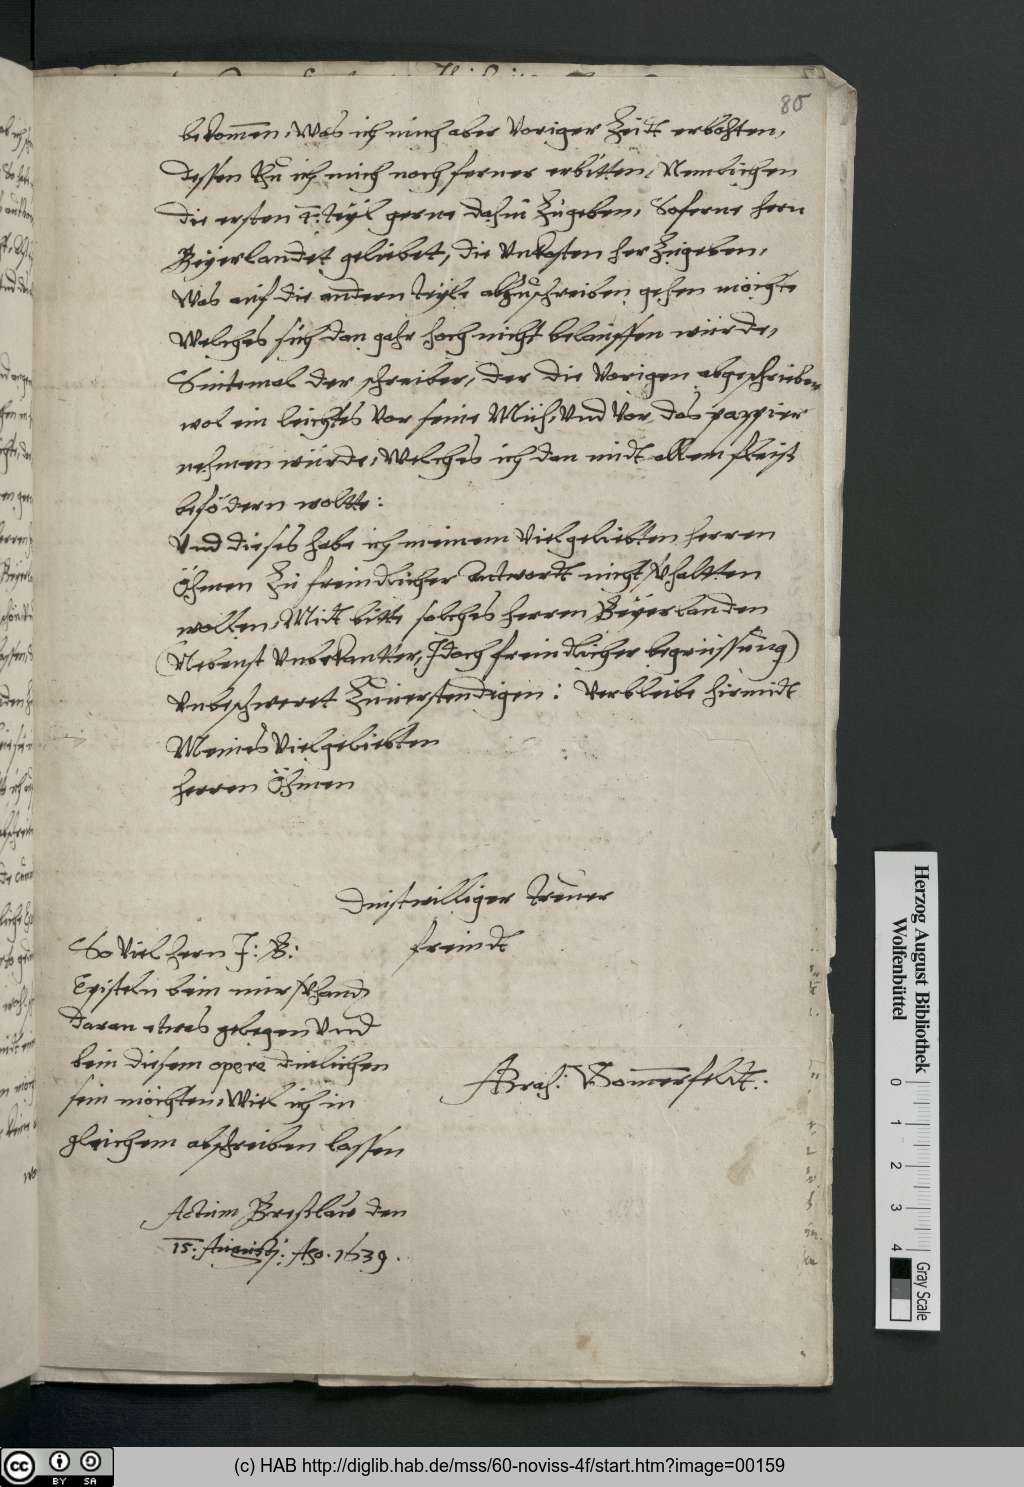 80
bekommen, Was ich mich aber Voriger Zeidt erbohten,
dessen thu ich mich noch ferner erbitten, Nemblichen
die ersten 4: teÿl gerne dahin Zugeben, Soferne hern
Beÿerlandet geliebet, die Unkosten her Zugeben,
Was auf die andern teÿle abzuschreiben gehen möchte
Welches sich dan gahr hoch nicht belauffen würde,
Sintemal der schreiber, der die Vorigen abgeschrieben
wol ein leichtes Vor seine Müh, Und Vor das pappier
nehmen würde, Welches ich dan midt allem fleiß
befödern woltte:
Und dieses habe ich meinem Vielgeliebten herren
Öhmen Zu freindlicher Antwordt nicht Vhaltten
wollen, Midt bitte solches herren Beÿerlanden
(Nebenst Unbekantter, Jdoch freindlicher begrüssung)
Unbeschweret Zuverstendigen: Verbleibe hirmidt
Meines Vielgeliebten
herren Öhmen
Dinstwilliger treuer
freindt
Abrah: Von Sommerfeldt:
So Viel hern J: B:
Episteln beim mir Vhand
daran etwas gelegen Und
beim diesem opere dinlichen
sein möchten, Wiel ich in
gleichem abschreiben lassen
Actum Breßlaw den
15: Augusti: Ao. 1639.
Herzog August Bibliothek
Wolfenbüttel
0 1 2 3 4
Gray Scale
cc BY SA
(c) HAB http://diglib.hab.de/mss/60-noviss-4f/start.htm?image=00159